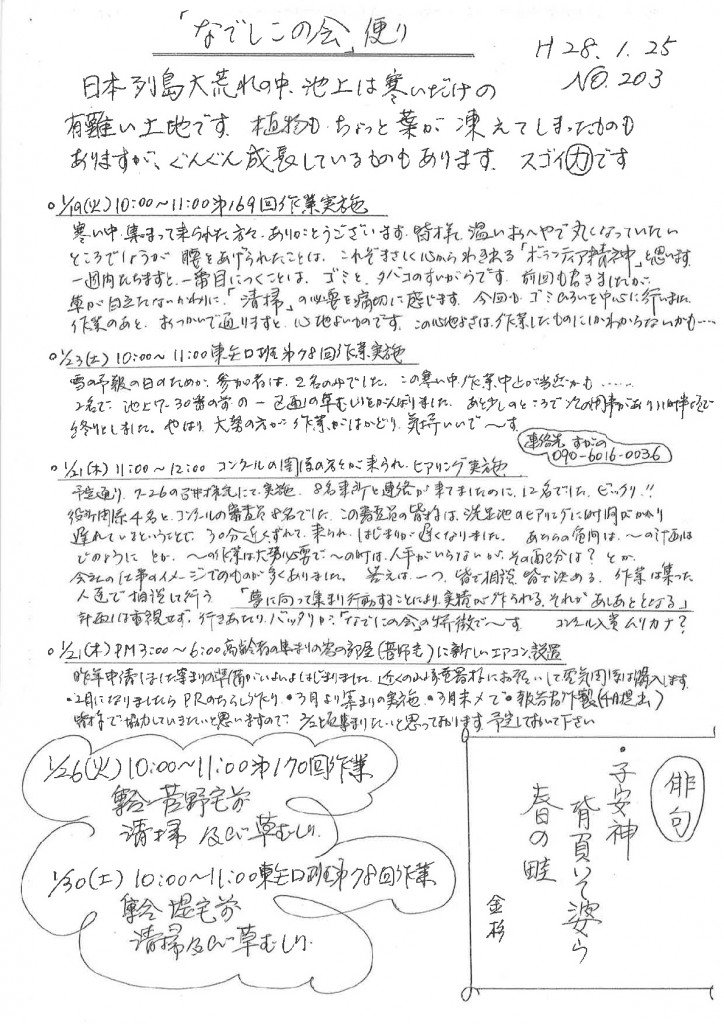 「なでしこの会」便り
H28.1.25
NO.203
日本列島大荒れの中、池上は寒いだけの
有難い土地です。植物も、ちょっと葉が凍えてしまったものも
ありますが、ぐんぐん成長しているものもあります。スゴイ力です
○1/19(火)10:00~11:00第169回作業実施
寒い中、集まって来られた方々、ありがとうございます。皆様、温いおへやで丸くなっていたい
ところでしょうが、腰をあげられたことは、これぞまさしく心からわき出る「ボランティア精神」と思います。
一週間たちますと、一番目につくことは、ゴミと、タバコのすいがらです。前回も書きましたが、
草が目立たないかわりに、「清掃」の必要を痛切に感じます。今回も、ゴミひろいを中心に行いました。
作業のあと、おつかいで通りますと、心地よいものです。この心地よさは、作業したものにしかわからないかも・・・・
○1/23(土)10:00~11:00東矢口班第78回作業実施
雪の予報の日のためか、参加者は、2名のみでした。この寒い中、作業中止が当然かも・・・・・・
2名で、池上7-30番の前の一区画の草むしりをがんばりました。あと少しのところで
終りとしました。やはり、大勢の方が作業がはかどり、気持いいで~す
連絡先 すがの
090-6016-0036
○1/21(木)11:00~12:00 コンクールの関係の方々が来られ、ヒアリング実施
予定通り、7-26の にて実施。8名来所と連絡が来てましたのに、12名でした。ビックリ!!
役所関係4名と、コンクールの審査員8名でした。この審査員の皆様は、洗足池のヒアリングに時間がかかり
遅れているということで、30分近くずれて、来られ、はじまりが遅くなりました。あちらの質問は、~の計画は
どのように とか、~の作業は大勢必要で~の時は、人手がいらないが、その配分は? とか、
会社の仕事のイメージでのものが多くありました。答えは、一つ、皆で相談、皆で決める、作業は集った
人達で相談して行う 「夢に向って集まり行動することにより、実績が作られる、それがあしあととなる」
計画には重視せず、行きあたり、バッタリが、「なでしこの会」の特徴で~す。 コンクール入賞ムリカナ?
○1/21(木)PM3:00~6:00高齢者の集まりの窓の部屋(菅野宅)に新しいエアコン設置
昨年申請しました集まりの準備がいよいよはじまりました。近くの山崎電器様にお願いして電気関係は購入します。
・2月になりましたらPRのちらしづくり、・3月より集まりの実施、・3月末〆で・報告書作製(4月提出)
皆様で協力していきたいと思いますので、 集まりたいと思っております。予定しておいて下さい
1/26(火)10:00~11:00第170回作業
集合 菅野宅前
清掃 及び草むしり
1/30(土)10:00~11:00東矢口班第78回作業
集合 堤宅前
清掃及び草むしり
俳句
・子安神
背負いて婆ら
春の畦
金杉